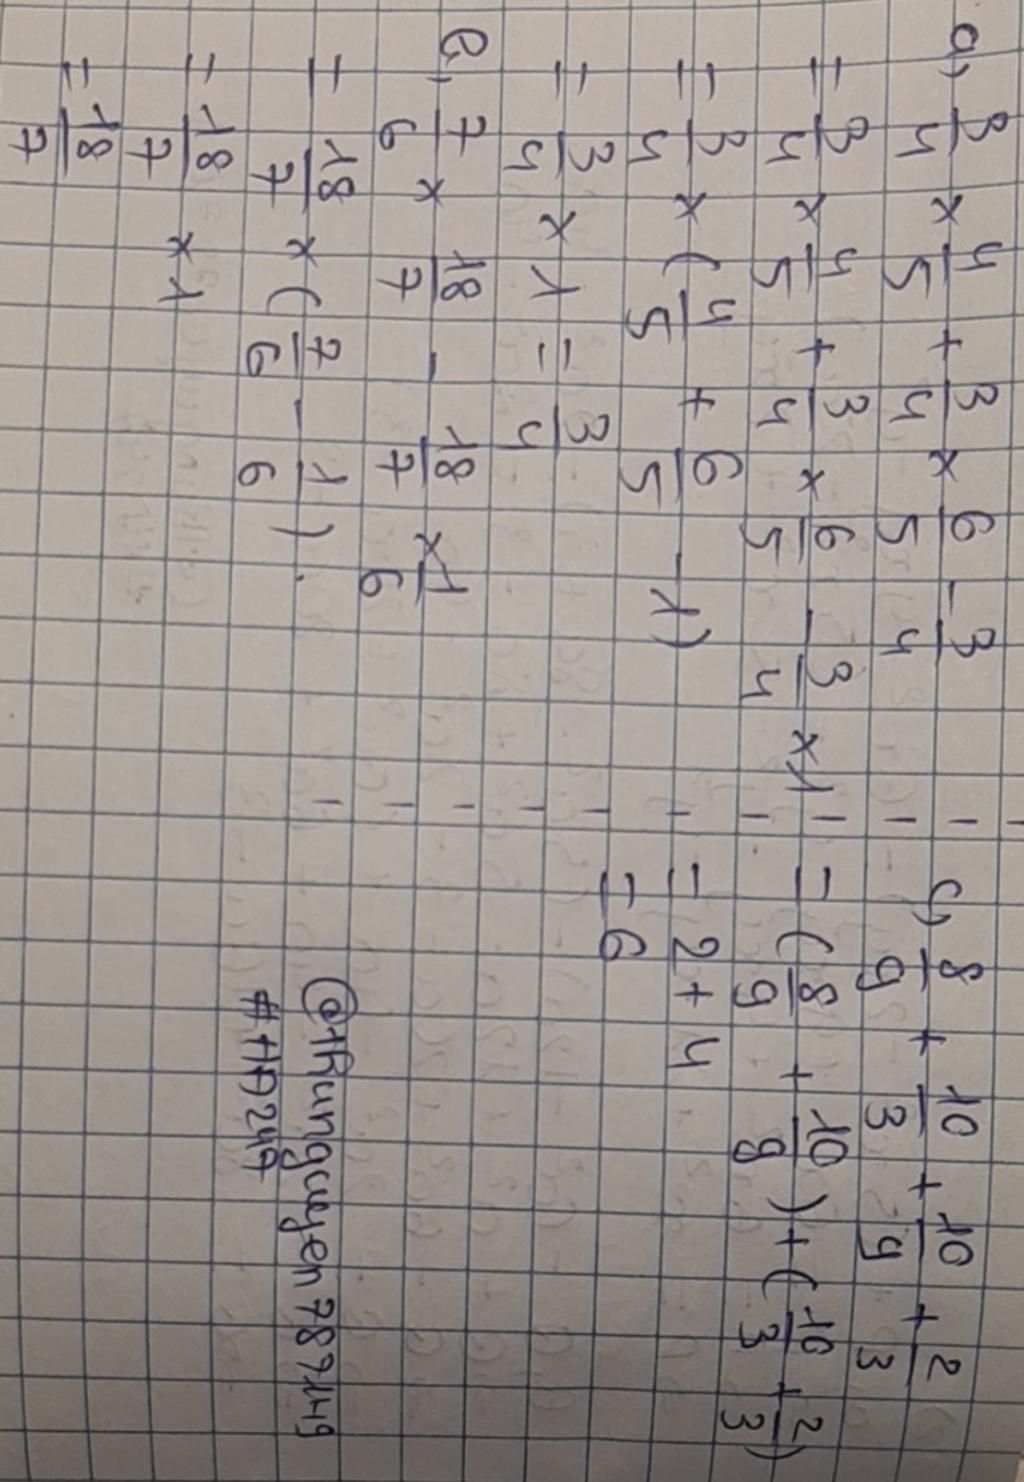 a) 3/4 × 4/5 + 3/4 × 6/5 - 3/4
= 3/4 × 4/5 + 3/4 × 6/5 - 3/4 × 1
= 3/4 × (4/5 + 6/5 - 1)
= 3/4 × 1 = 3/4
b) 7/6 × 18/7 - 18/7 × 1/6
= 18/7 × (7/6 - 1/6)
= 18/7 × 1
= 18/7
c) 8/9 + 10/3 + 10/9 + 2/3
= (8/9 + 10/9) + (10/3 + 2/3)
= 2 + 4
= 6
@thunguyen787149